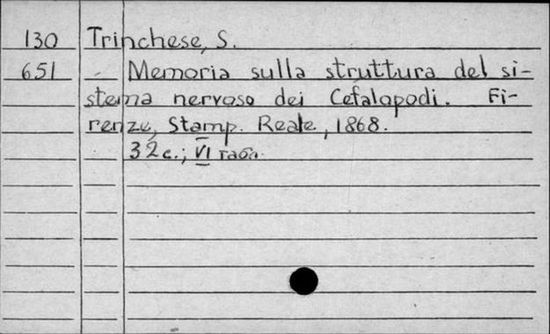 130 Trinchese, S.
651 Memoria sulla struttura del si-
stema nervoso dei Cefalopodi. Fi-
renze, Stamp. Reale, 1868.
32 c.; VI табл.